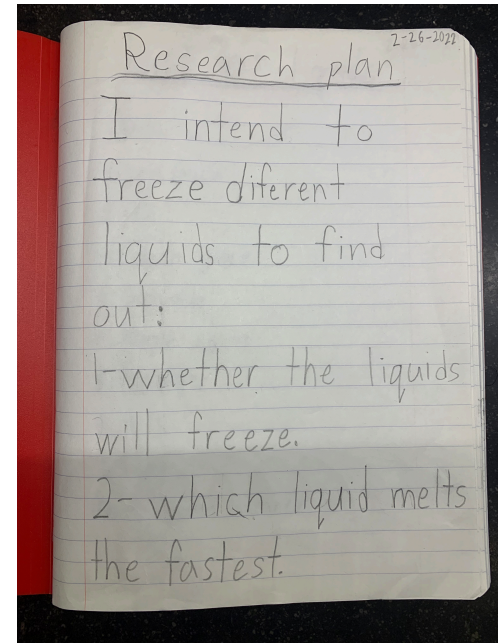 2-26-2022
Research plan
I intend to
freeze diferent
liquids to find
out:
1-whether the liquids
will freeze.
2- which liquid melts
the fastest.